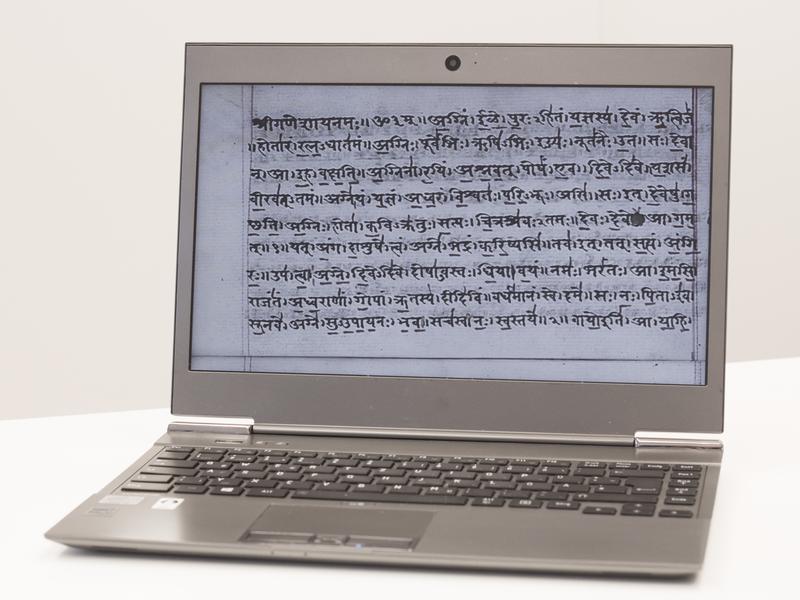 श्रीगणेशायनमः॥ॐ३म्॥अग्निं।ईळे।पुरःऽहितं।यज्ञस्य।देवं।ऋत्विजं
॥होतारं।रत्नऽधातमं॥अग्निः।पूर्वेभिः।ऋषिऽभिः।ईड्यः।नूतनैः।उत॥सः।देवा
न्।आ।इह।वक्षति॥अग्निना।रयिं।अश्नवत्।पोषं।एव।दिवेऽदिवे॥यशसं
वीरवत्ऽतमं॥अग्ने।यं।यज्ञं।अध्वरं।विश्वतः।परिऽभूः।असि॥सः।इत्।देवेषु।ग
च्छति॥अग्निः।होता।कविऽक्रतुः।सत्यः।चित्रश्रवःऽतमः॥देवः।आ।गम
त्॥१॥यत्।अंग।दाशुषे।त्वं।अग्ने।भद्रं।करिष्यसि॥तव।इत्।तत्।सत्यं।अंगि
रः॥उप।त्वा।अग्ने।दिवेऽदिवे।दोषाऽवस्तः।धिया।वयं॥नमः।भरंतः।आ।इमसि
राजंतं।अध्वराणां।गोपां।ऋतस्य।दीदिविं॥वर्धमानं।स्वे।दमे॥सः।नः।पिताऽइव
सूनवे।अग्ने।सुऽउपायनः।भव॥सचस्व।नः।स्वस्तये॥२॥वायोइति।आ।याहि।